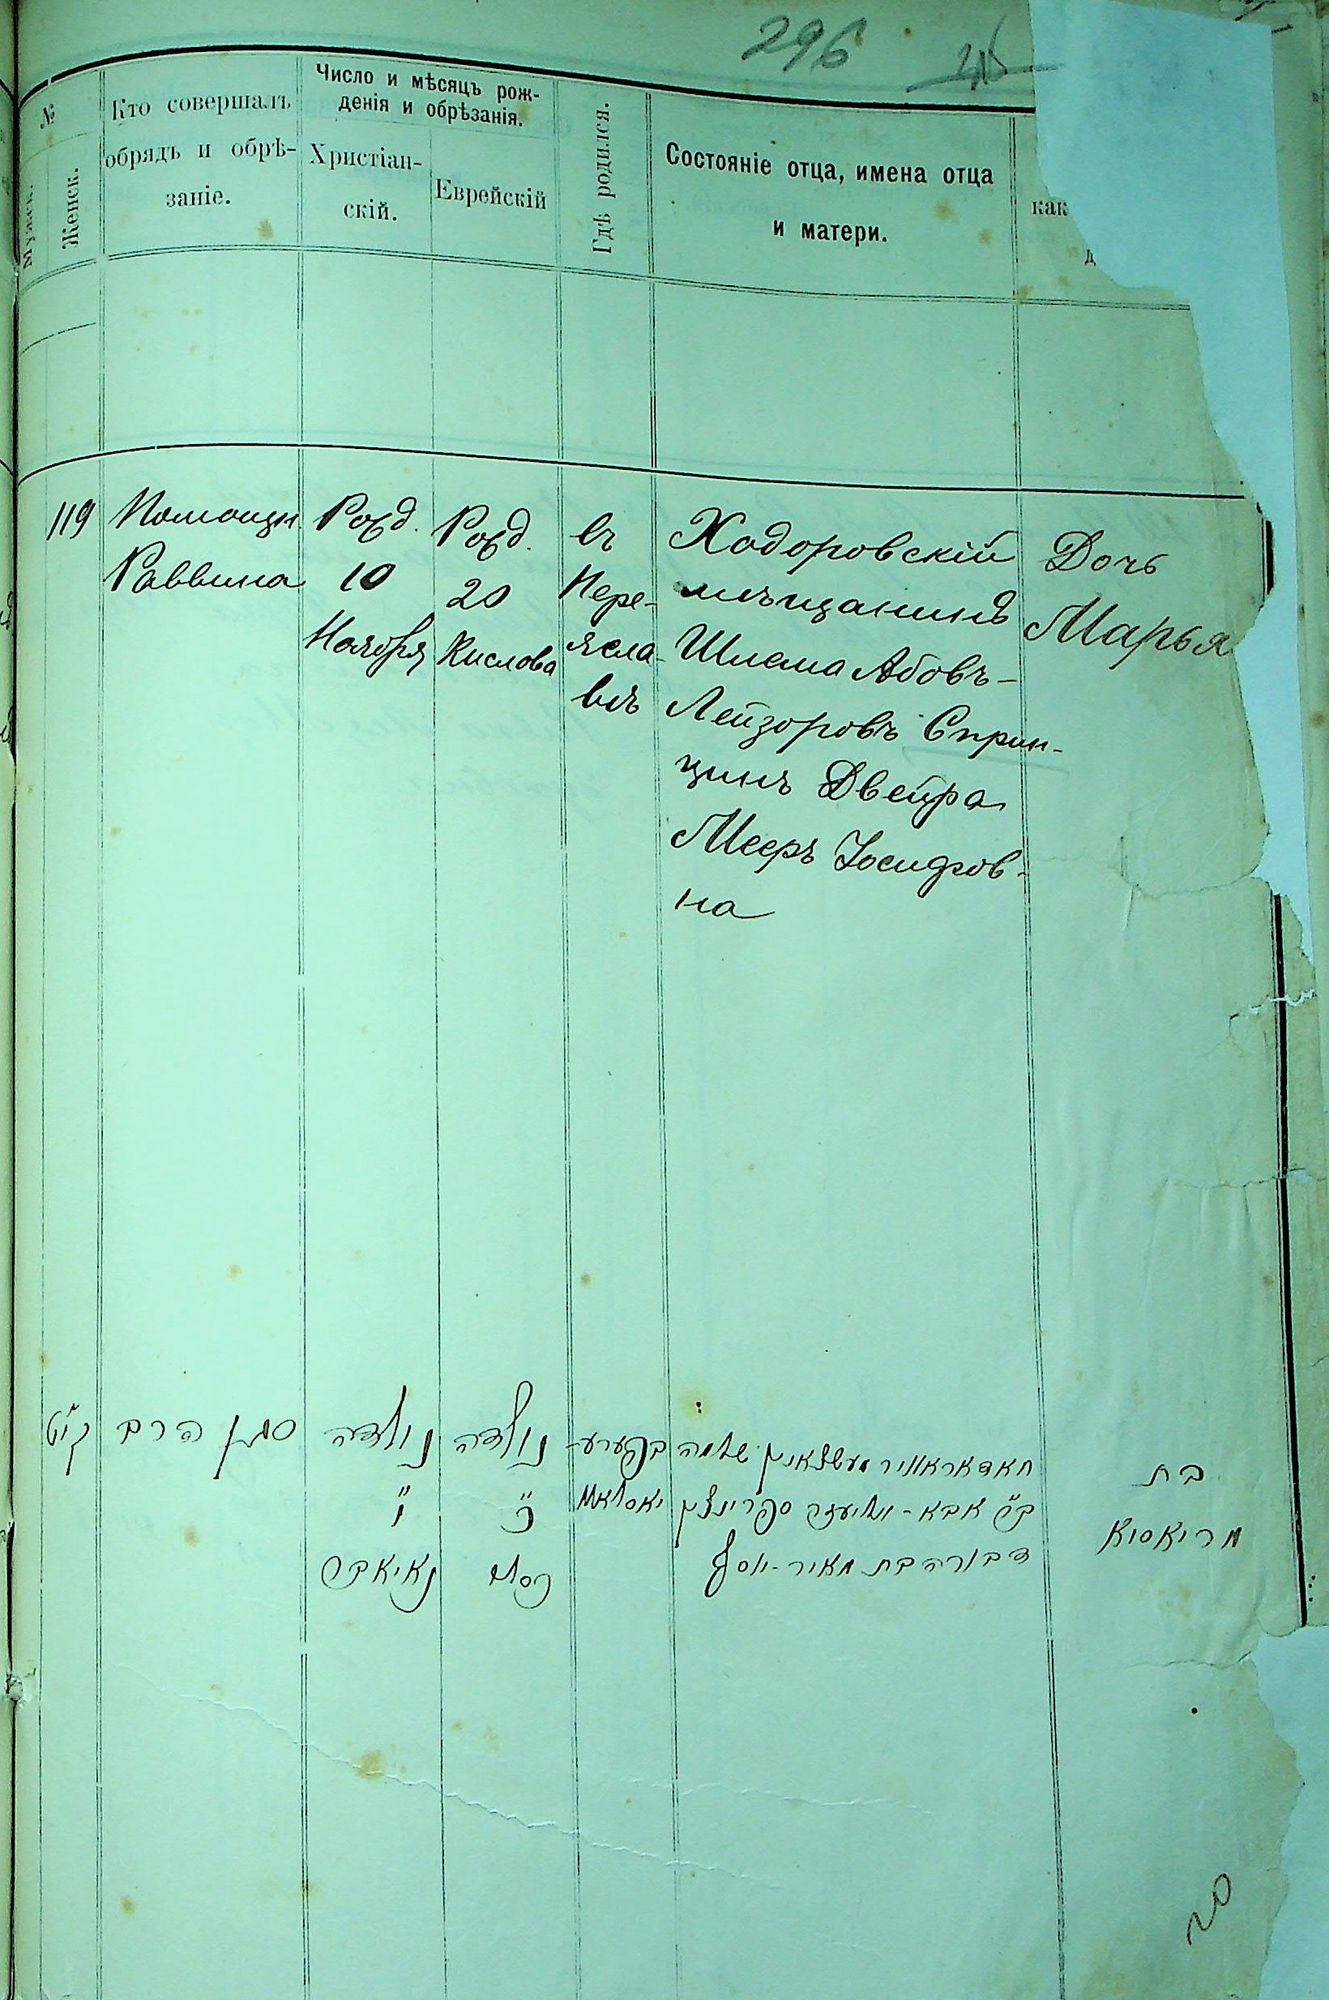 296
№
Мужск.
Женск.
Кто совершалъ
обрядъ и обрѣ-
заніе.
Число и мѣсяцъ рож-
денія и обрѣзанія.
Христіан-
скій.
Еврейскій
Гдѣ родился.
Состояніе отца, имена отца
и матери.
как
д
119
Помощн
Раввина
Рожд.
10
Ноября
Рожд.
20
Кислова
въ
Пере-
ясла-
влѣ
Ходоровскій
мѣщанинъ
Шлема Абовъ-
Лейзоровъ Сприн-
цинъ Двейра
Мееръ Іосифов-
на
Дочь
Марья
קי"ט
סגן הרב
נולדה
י"
נאיאבר
נולדה
כ"
כסלו
בפערע-
יאסלאוו
שלמה
אבא - ספרינצין
דבורה בת מאיר - יוסף
בת
20